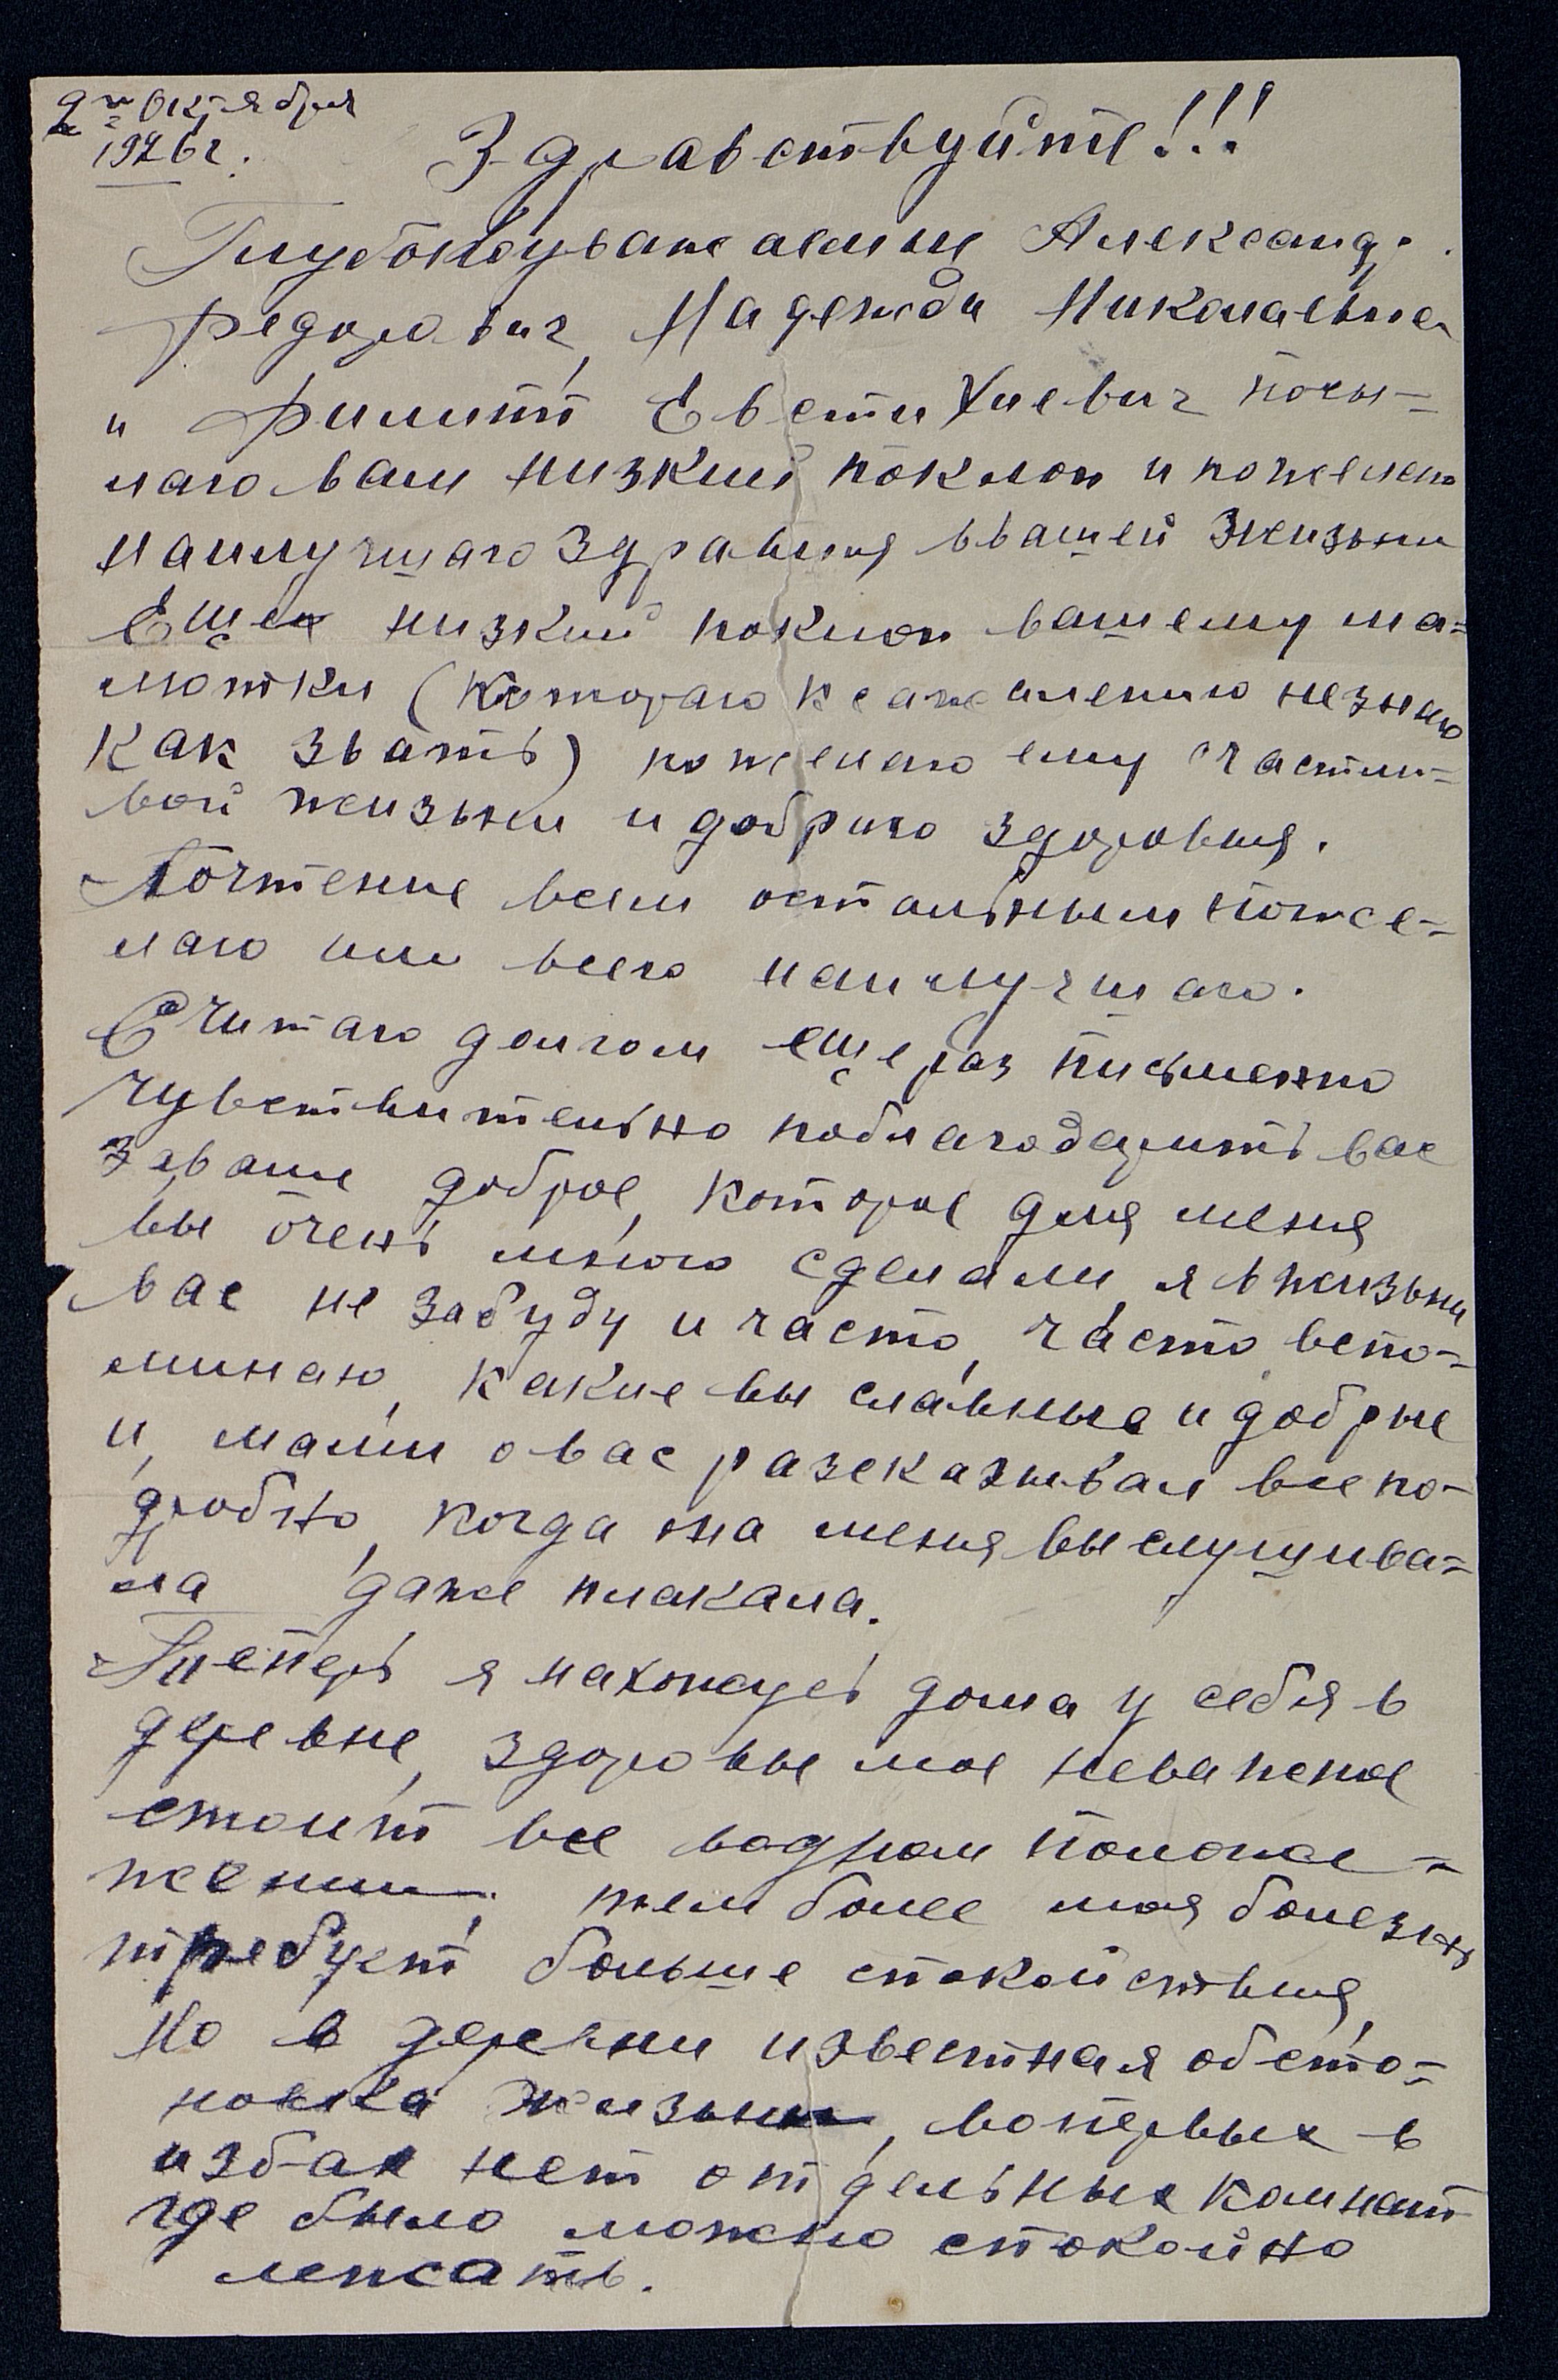 2го Октября
1926г.
Здравствуйте!!!
Глубокоуважаемые Александр
Федорович, Надежда Николаевна
и Филипп Евстихиевич посы-
лаю вам низкий поклон и пожелаю
наилучшаго здравия ввашей жизьни
Еще низкий поклон вашему ма=
лютки (которого ксажелению незнаю
как звать) пожелаю ему счастли=
вой жизьни и доброго здоровия.
Почтение всем остальным поже-
лаю им всего наилучшаго.
Считаю долгом еще раз письменно
чувствительно поблагодарить вас
заваше доброе, которое для меня
вы очень много сделали, я вжизьни
вас не забуду и часто, часто вспо-
минаю, какие вы славные и добрые
и, мами овас разсказывал все по-
дробно, когда она меня выслушива=
ла даже плакала.
Теперь я нахожусь дома у себя в
деревне, здоровье мое неважное
стоит все водном положе-
жении, тем более моя болезнь
требует больше спокойствия,
но в деревни известная обсто-
новка жизьни, вопервых в
избах нет отдельных комнат
где было можно спокойно
лежать.